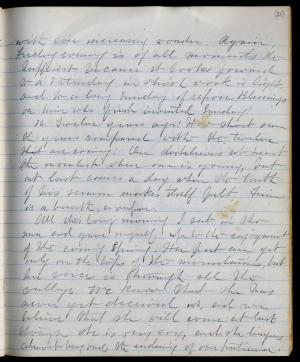 with ever increasing wonder. Again,
Friday evening is of all moments the
happiest, because it looks forward
to a Saturday in which work is light,
and to a long Sunday of repose. Blessings
on him who first invented Sunday.
16. Twelve years ago! How short are
the years compared with the twelve
that are coming! Our
the moralist when one is young, but
at last comes a day when the truth
of his sermon makes itself felt. Time
is a breath, a vapor.
All this long morning I sat in the
sun and gave myself up to the enjoyment
of the coming Spring. Her feet are yet
only on the tops of the mountains, but
her voice is through all the
valleys. We know that she has
never yet deceived us, and we
believe that she will come at last
though she is very coy, and she lingers
almost beyond the enduring of our patience.